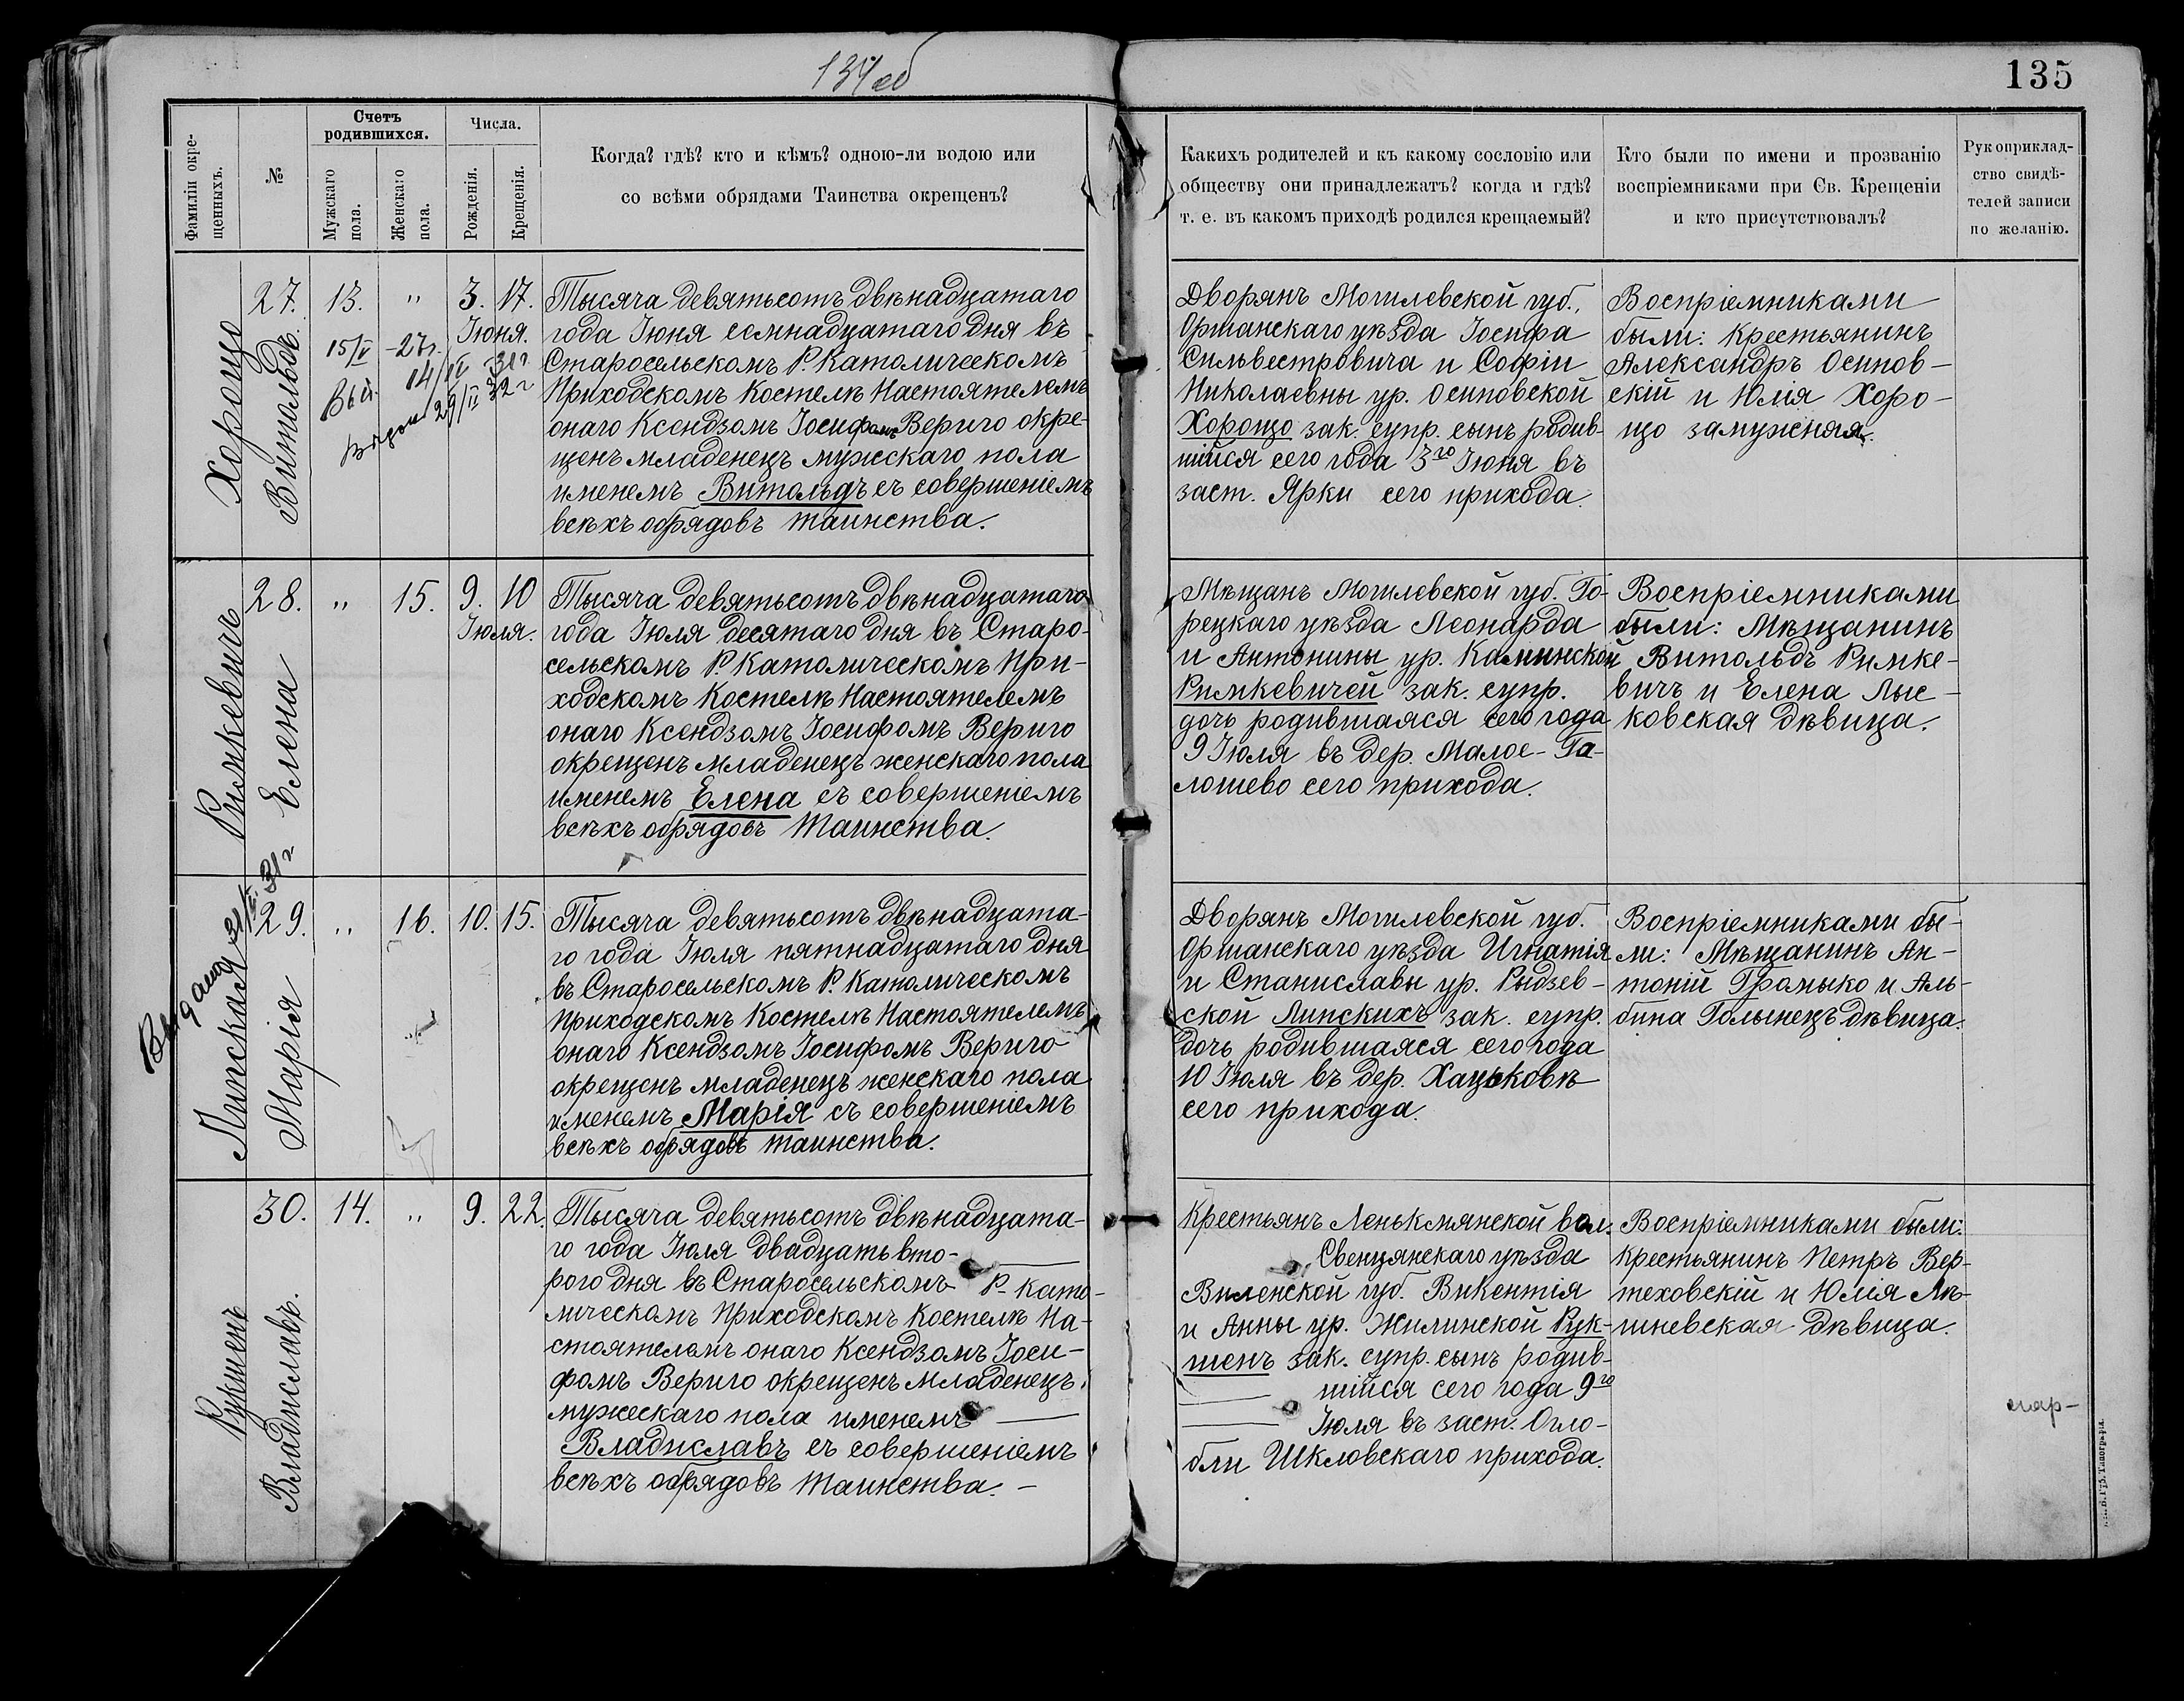 134 об
135
Фамиліи окре-
щенныхъ.
№
Счетъ
родившихся.
Мужскаго
пола.
Женскаго
пола.
Числа.
Рожденія.
Крещенія.
Когда? гдѣ? кто и кѣмъ? одною-ли водою или
со всѣми обрядами Таинства окрещенъ?
Какихъ родителей и къ какому сословію или
обществу они принадлежатъ? когда и гдѣ?
т. е. въ какомъ приходѣ родился крещаемый?
Кто были по имени и прозванію
воспріемниками при Св. Крещеніи
и кто присутствовалъ?
Рукоприклад-
ство свидѣ-
телей записи
по желанію.
Хорощо
Витольдъ.
27. 13. " 3. 17.
Іюня.
15/V -27г.
14/IV 31г
29/II 32г
Тысяча девятьсотъ двѣнадцатаго
года Іюня семнадцатаго дня въ
Старосельскомъ Р. Католическомъ
Приходскомъ Костелѣ Настоятелемъ
онаго Ксендзомъ Іосифомъ Вериго окре-
щенъ младенецъ мужскаго пола
именемъ Витольдъ съ совершеніемъ
всѣхъ обрядовъ таинства.
Дворянъ Могилевской губ.,
Оршанскаго уѣзда Іосифа
Сильвестровича и Софіи
Николаевны ур. Осиповской
Хорощо зак. супр. сынъ родив-
шійся сего года 3го Іюня въ
заст. Ярки сего прихода.
Воспріемниками
были: Крестьянинъ
Александръ Осипов-
скій и Юлія Хоро-
що замужняя.
Римкевичъ
Елена
28. " 15. 9. 10
Іюля.
Тысяча девятьсотъ двѣнадцатаго
года Іюля десятаго дня въ Старо-
сельскомъ Р. Католическомъ При-
ходскомъ Костелѣ Настоятелемъ
онаго Ксендзомъ Іосифомъ Вериго
окрещенъ младенецъ женскаго пола
именемъ Елена съ совершеніемъ
всѣхъ обрядовъ Таинства.
Мѣщанъ Могилевской губ. Го-
рецкаго уѣзда Леонарда
и Антонины ур. Калинской
Римкевичей зак. супр.
дочь родившаяся сего года
9 Іюля въ дер. Малое-Га-
лошево сего прихода.
Воспріемниками
были: Мѣщанинъ
Витольдъ Римке-
вичъ и Елена Лыс-
ковская дѣвица.
Липская
Марія
29. " 16. 10. 15.
Тысяча девятьсотъ двѣнадцата-
го года Іюля пятнадцатаго дня
въ Старосельскомъ Р. Католическомъ
Приходскомъ Костелѣ Настоятелемъ
онаго Ксендзомъ Іосифомъ Вериго
окрещенъ младенецъ женскаго пола
именемъ Марія съ совершеніемъ
всѣхъ обрядовъ таинства.
Дворянъ Могилевской губ.
Оршанскаго уѣзда Игнатія
и Станиславы ур. Рыдзев-
ской Липскихъ зак. супр.
дочь родившаяся сего года
10 Іюля въ дер. Хацьковѣ
сего прихода.
Воспріемниками бы-
ли: Мѣщанинъ Ан-
тоній Громыко и Аль-
бина Голынецъ дѣвица.
Рукшенъ
Владиславъ.
30. 14. " 9. 22.
Тысяча девятьсотъ двѣнадцата-
го года Іюля двадцать вто-
рого дня въ Старосельскомъ Р. Като-
лическомъ Приходскомъ Костелѣ На-
стоятелемъ онаго Ксендзомъ Іоси-
фомъ Вериго окрещенъ младенецъ
мужескаго пола именемъ
Владиславъ съ совершеніемъ
всѣхъ обрядовъ Таинства. -
Крестьянъ Ленькмянской вол.
Свенцянскаго уѣзда
Виленской губ. Викентія
и Анны ур. Жилинской Рук-
шенъ зак. супр. сынъ родив-
шійся сего года 9го
Іюля въ заст. Огло-
бли Шкловскаго прихода.
Воспріемниками были:
Крестьянинъ Петръ Вер-
теховскій и Юлія Ля-
шневская дѣвица.